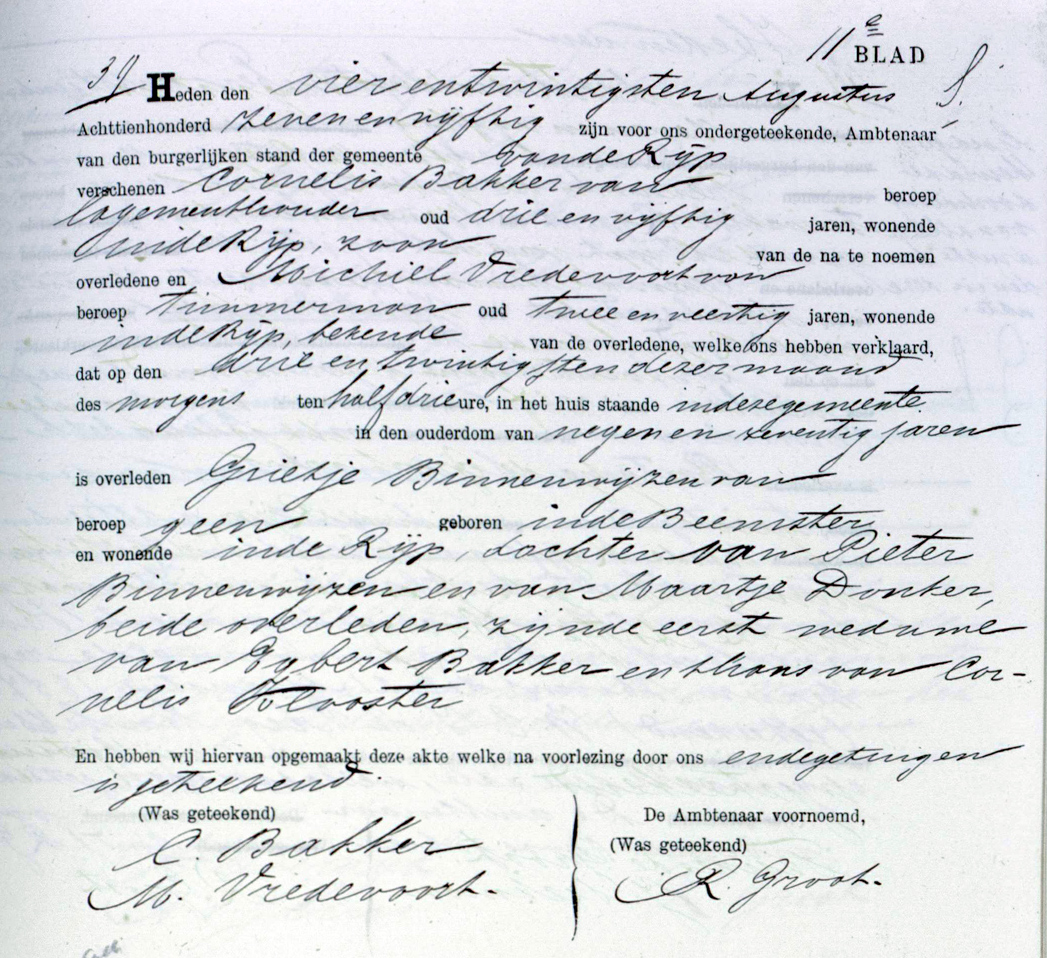 11e BLAD
39 Heden den vier en twintigsten Augustus
Achttienhonderd zeven en vyftig zijn voor ons ondergeteekende, Ambtenaar
van den burgerlijken stand der gemeente van de Ryp
verschenen Cornelis Bakker van beroep
logementhouder oud drie en vyftig jaren, wonende
in de Ryp, zoon van de na te noemen
overledene en Michiel Vredevoort van
beroep timmerman oud twee en veertig jaren, wonende
in de Ryp, bekende van de overledene, welke ons hebben verklaard,
dat op den drie en twintigsten dezer maand
des morgens ten half drie ure, in het huis staande in deze gemeente
in den ouderdom van negen en zeventig jaren
is overleden Grietje Binnenwyzen van
beroep geen geboren in de Beemster
en wonende in de Ryp, dochter van Pieter
Binnenwyzen en van Maartje Donker,
beide overleden, zynde eerst weduwe
van Egbert Bakker en thans van Cor-
nelis Klooster
En hebben wij hiervan opgemaakt deze akte welke na voorlezing door ons en de getuigen
is geteekend
(Was geteekend) De Ambtenaar voornoemd,
C Bakker (Was geteekend)
M. Vredevoort. R. Groot.